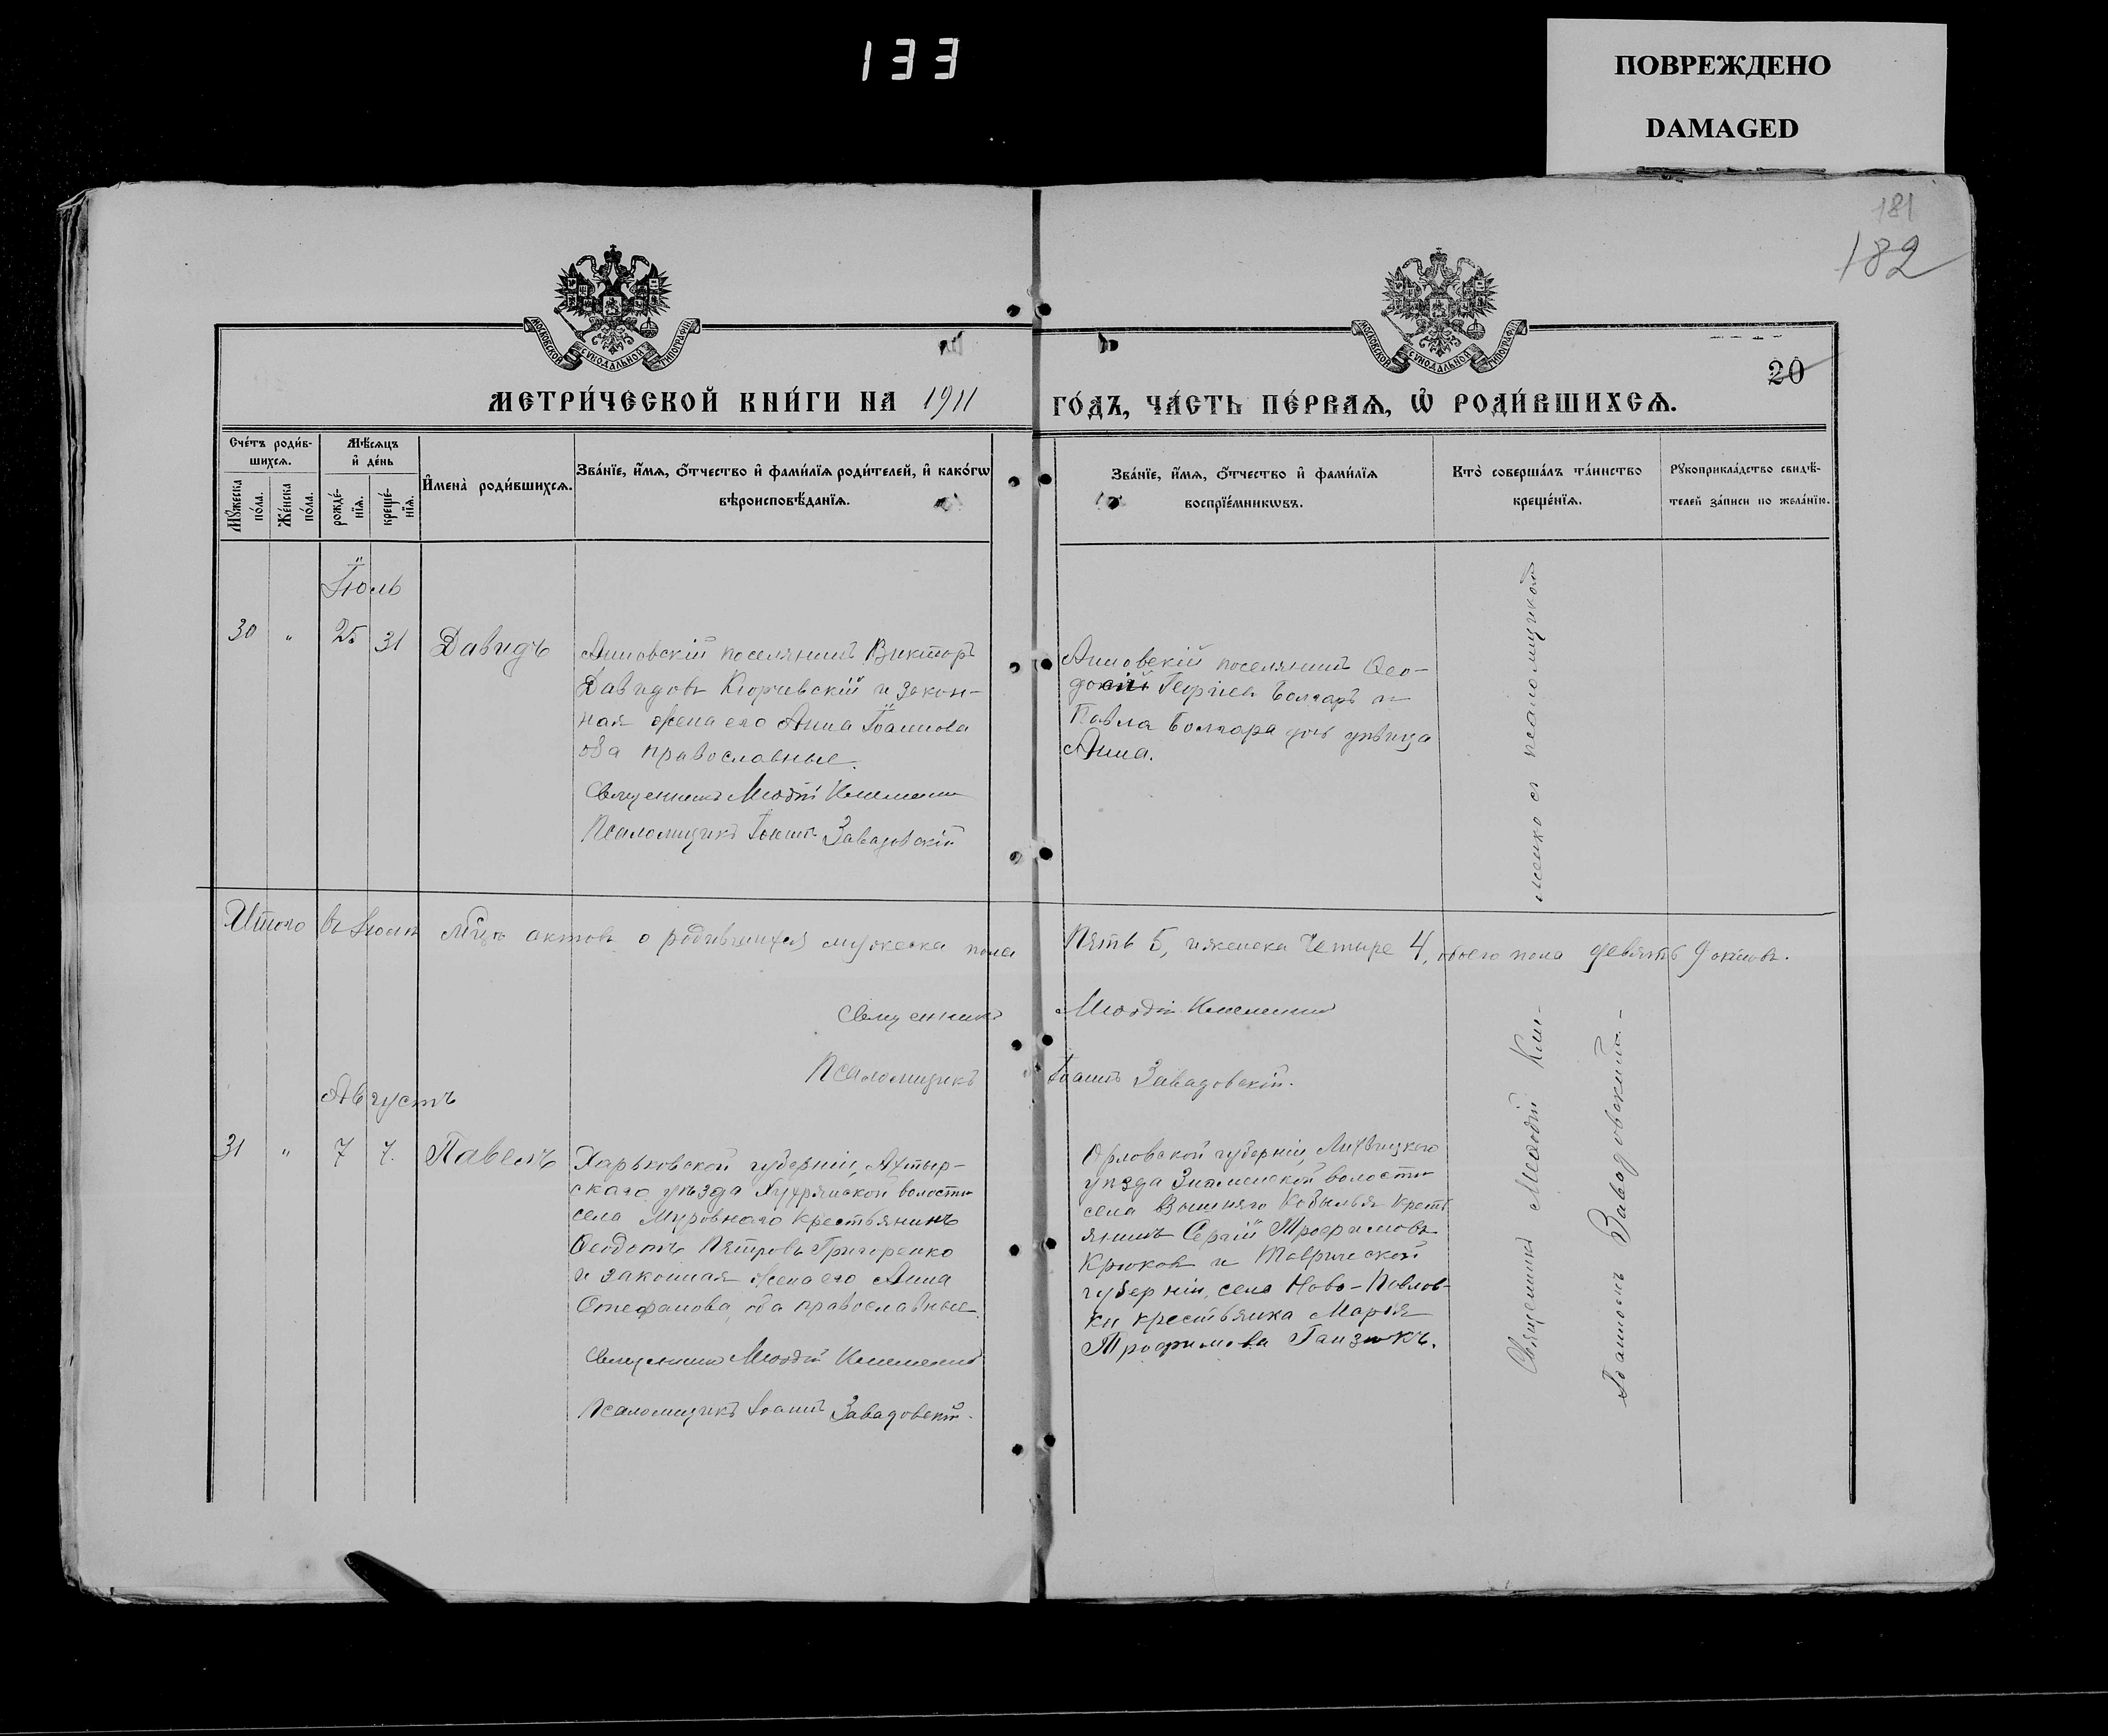 133
ПОВРЕЖДЕНО
DAMAGED
181
182
МОСКОВСКОЙ СѴНОДАЛЬНОЙ ТИПОГРАФІИ
МОСКОВСКОЙ СѴНОДАЛЬНОЙ ТИПОГРАФІИ
20
МЕТРИ́ЧЕСКОЙ КНИ́ГИ НА 1911
ГО́ДЪ, ЧА́СТЬ ПЕ́РВАѦ, Ѡ҆ РОДИ́ВШИХСѦ.
Сче́тъ роди́в-
шихсѧ.
Мꙋ́жеска
по́ла.
Же́нска
по́ла.
Мѣ́сѧцъ
и҆ де́нь
рожде́-
нїѧ.
креще́-
нїѧ.
И҆мена̀ роди́вшихсѧ.
Зва́нїе, и҆́мѧ, ѻ҆́тчество и҆ фами́лїѧ роди́телей, и҆ како́гѡ
вѣроисповѣ́данїѧ.
Зва́нїе, и҆́мѧ, ѻ҆́тчество и҆ фами́лїѧ
воспрїе́мникѡвъ.
Кто̀ соверша́лъ та́инство
креще́нїѧ.
Рꙋкоприкла́дство свидѣ́-
телей за́писи по жела́нїю.
Іюль
30 " 25 31 Давидъ
Анновскій поселянинъ Викторъ
Давидовъ Кюркчскій и закон-
ная жена его Анна Іоаннова
оба православные.
Священникъ Меѳодій Клименко
Псаломщикъ Іоаннъ Завадовскій
Анновскій поселянинъ Ѳео-
досій Георгіев Болгаръ и
Павла Болгара дочь дѣвица
Анна.
Итого въ Іюлѣ мцѣ актовъ о родившихся мужеска пола
Пять 5, и женска Четыре 4, обоего пола девять 9 актовъ.
Священникъ Меѳодій Клименко
Псаломщикъ Іоаннъ Завадовскій.
Августъ
31 " 7 7. Павелъ
Харьковской губерніи, Ахтыр-
скаго уѣзда Хухрянской волости
села Муровнаго крестьянинъ
Ѳеодотъ Петровъ Григоренко
и законная жена его Анна
Стефанова, оба православные
Священникъ Меѳодій Клименко
Псаломщикъ Іоаннъ Завадовскій.
Орловской губерніи,
уѣзда Знаменской волости
села Вышняго крестъ
янинъ Сергій Трофимовъ
Крюковъ и Таврической
губерніи, села Ново-Павлов-
ки крестьянка Марія
Трофимова Ганзюкъ.
Священникъ Меѳодій Кли-
менко съ псаломщикомъ
Іоанномъ Завадовскимъ.-